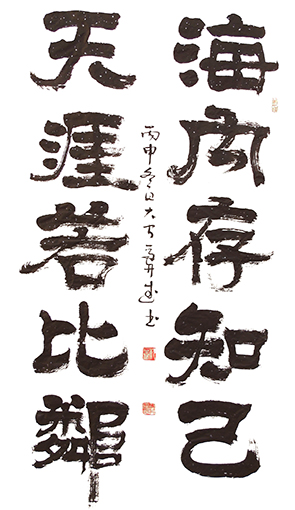 海内存知己
天涯若比鄰
丙申冬日大